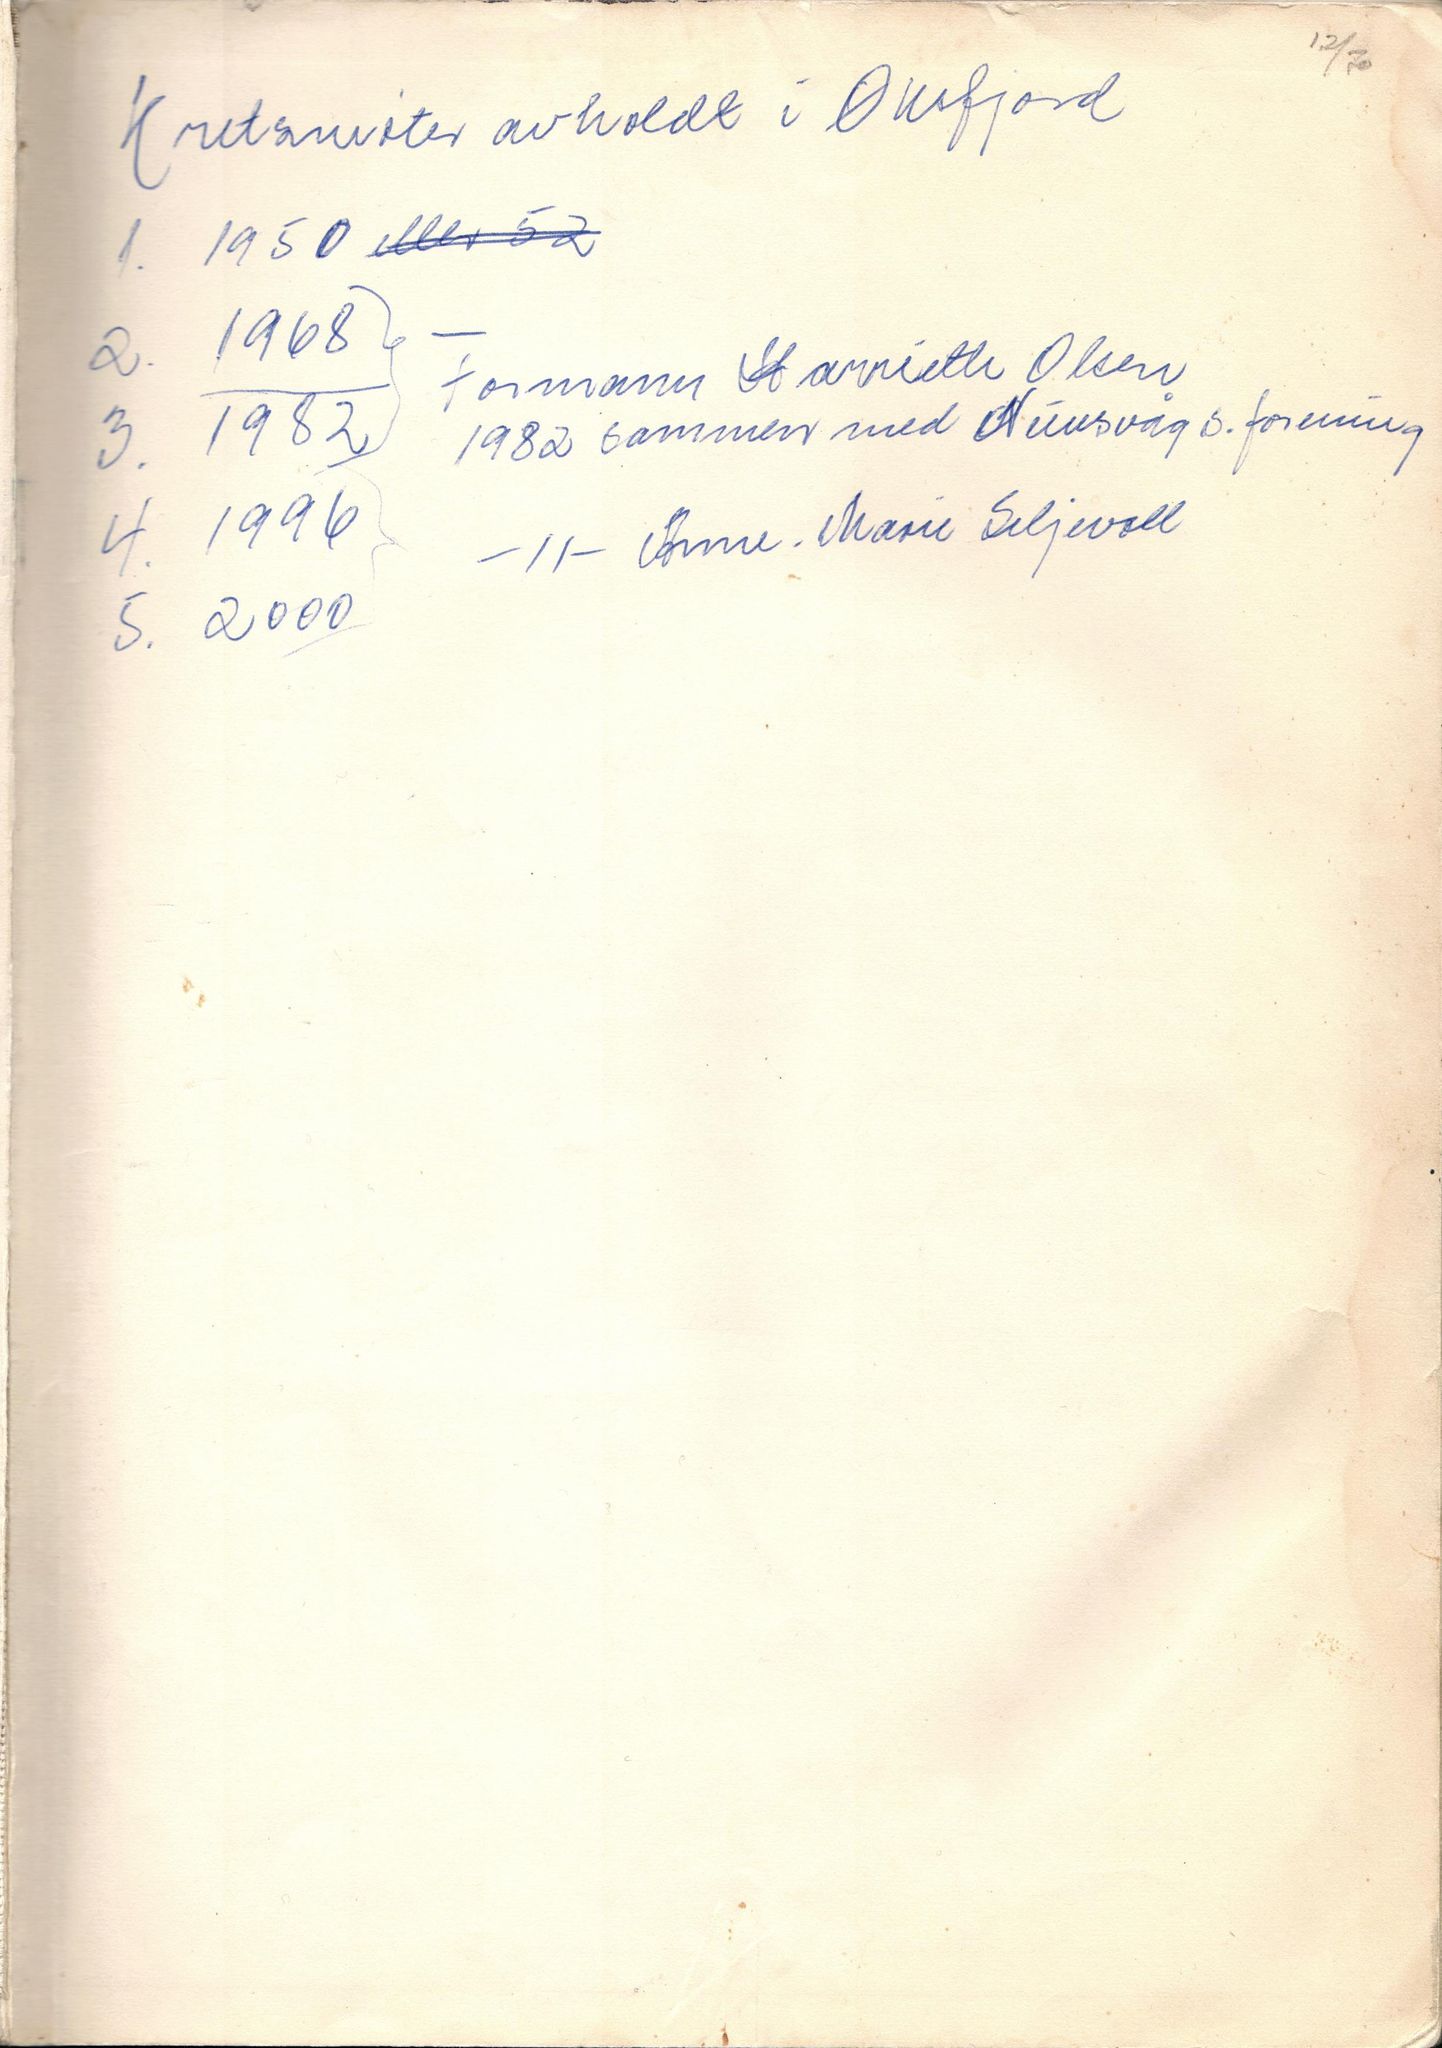 12/70
Kretsmøter avholdt i Øksfjord
1. 1950 eller 52
2. 1968 —
Formann Harriette Olsen
3. 1982 1982 sammen med Nuvsvåg s. forening
4. 1996 —11— Anne-Marie Seljevoll
5. 2000